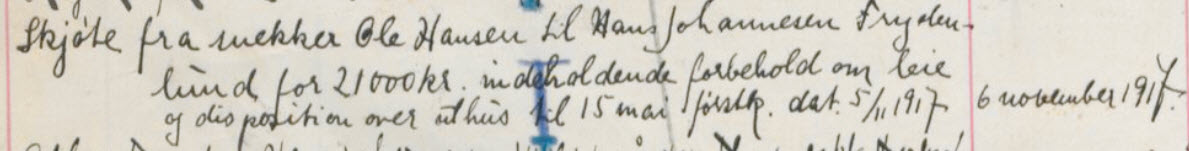 Skjøte fra snekker Ole Hansen til Hans Johannesen Fryden-
lund for 21000 kr. indeholdende forbehold om leie
og disposition over uthus til 15 mai førstk. dat. 5/11 1917 6 november 1917.